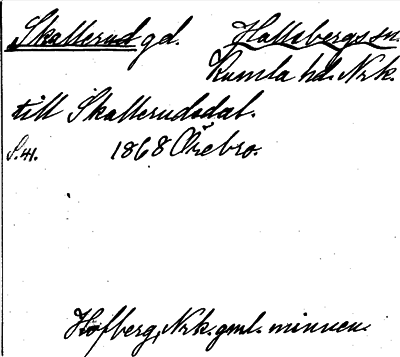 Skallerud gd. Hallsbergs sn.
Kumla hd. Nrk.
till Skallerudsdal.
S.41. 1868 Örebro.
Hofberg, Nrk. gml. minnen.